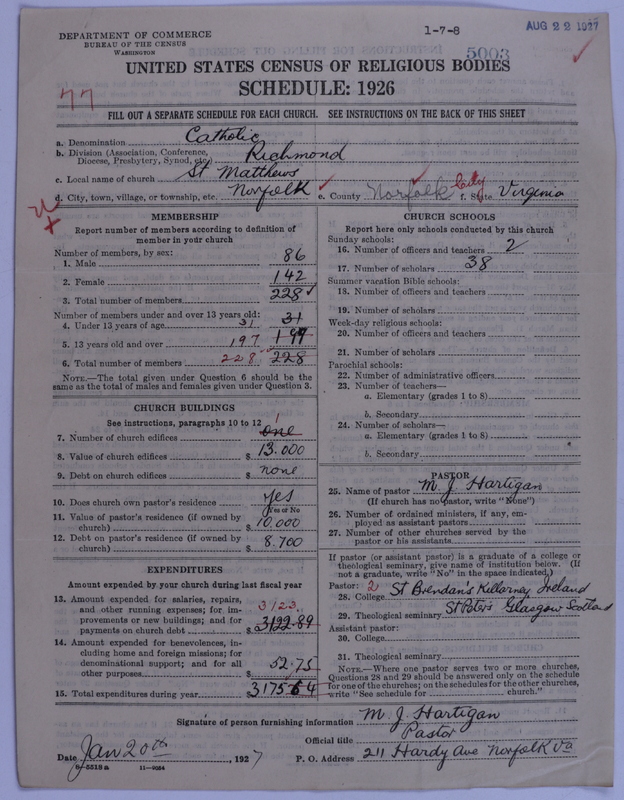 DEPARTMENT OF COMMERCE
BUREAU OF THE CENSUS
WASHINGTON
1-7-8
AUG 22 1927
5003
UNITED STATES CENSUS OF RELIGIOUS BODIES
SCHEDULE: 1926
77
FILL OUT A SEPARATE SCHEDULE FOR EACH CHURCH. SEE INSTRUCTIONS ON THE BACK OF THIS SHEET
a. Denomination Catholic
b. Division (Association, Conference, Diocese, Presbytery, Synod, etc.) Richmond
c. Local name of church St Matthews
d. City, town, village, or township, etc. Norfolk e. County Norfolk City f. State Virginia
MEMBERSHIP
Report number of members according to definition of
member in your church
Number of members, by sex:
1. Male 86
2. Female 142
3. Total number of members 228
Number of members under and over 13 years old:
4. Under 13 years of age 31 31
5. 13 years old and over 197 199
6. Total number of members 228 228
NOTE.—The total given under Question 6 should be the
same as the total of males and females given under Question 3.
CHURCH BUILDINGS
See instructions, paragraphs 10 to 12
7. Number of church edifices one 1
8. Value of church edifices $ 13.000
9. Debt on church edifices $ none
10. Does church own pastor's residence yes
(Yes or No)
11. Value of pastor's residence (if owned by
church) $ 10,000
12. Debt on pastor's residence (if owned by
church) $ 8.700
EXPENDITURES
Amount expended by your church during last fiscal year
13. Amount expended for salaries, repairs,
and other running expenses; for im-
provements or new buildings; and for
payments on church debt $ 3122.89 3123
14. Amount expended for benevolences, in-
cluding home and foreign missions; for
denominational support; and for all
other purposes $ 52.75
15. Total expenditures during year $ 3175 64
CHURCH SCHOOLS
Report here only schools conducted by this church
Sunday schools:
16. Number of officers and teachers 2
17. Number of scholars 38
Summer vacation Bible schools:
18. Number of officers and teachers
19. Number of scholars
Week-day religious schools:
20. Number of officers and teachers
21. Number of scholars
Parochial schools:
22. Number of administrative officers
23. Number of teachers—
a. Elementary (grades 1 to 8)
b. Secondary
24. Number of scholars—
a. Elementary (grades 1 to 8)
b. Secondary
PASTOR
25. Name of pastor M. J. Hartigan
(If church has no pastor, write "None")
26. Number of ordained ministers, if any, em-
ployed as assistant pastors
27. Number of other churches served by the
pastor or his assistants
If pastor (or assistant pastor) is a graduate of a college or
theological seminary, give name of institution below. (If
not a graduate, write "No" in the space indicated.)
Pastor: 2
28. College St Brendan's Killarney Ireland
29. Theological seminary St Peters Glasgow Scotland
Assistant pastor:
30. College
31. Theological seminary
NOTE.—Where one pastor serves two or more churches,
Questions 28 and 29 should be answered only on the schedule
for one of the churches; on the schedules for the other churches,
write "See schedule for church."
Signature of person furnishing information M. J. Hartigan
Official title Pastor
Date Jan 20th, 1927 P. O. Address 211 Hardy Ave Norfolk Va
8-5518a 11-9264